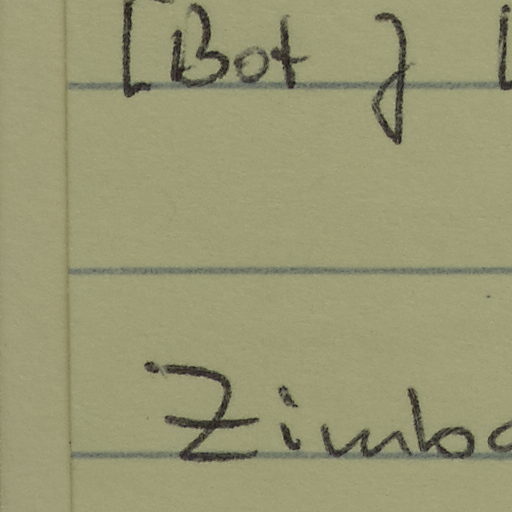 [Bot }
Zimba